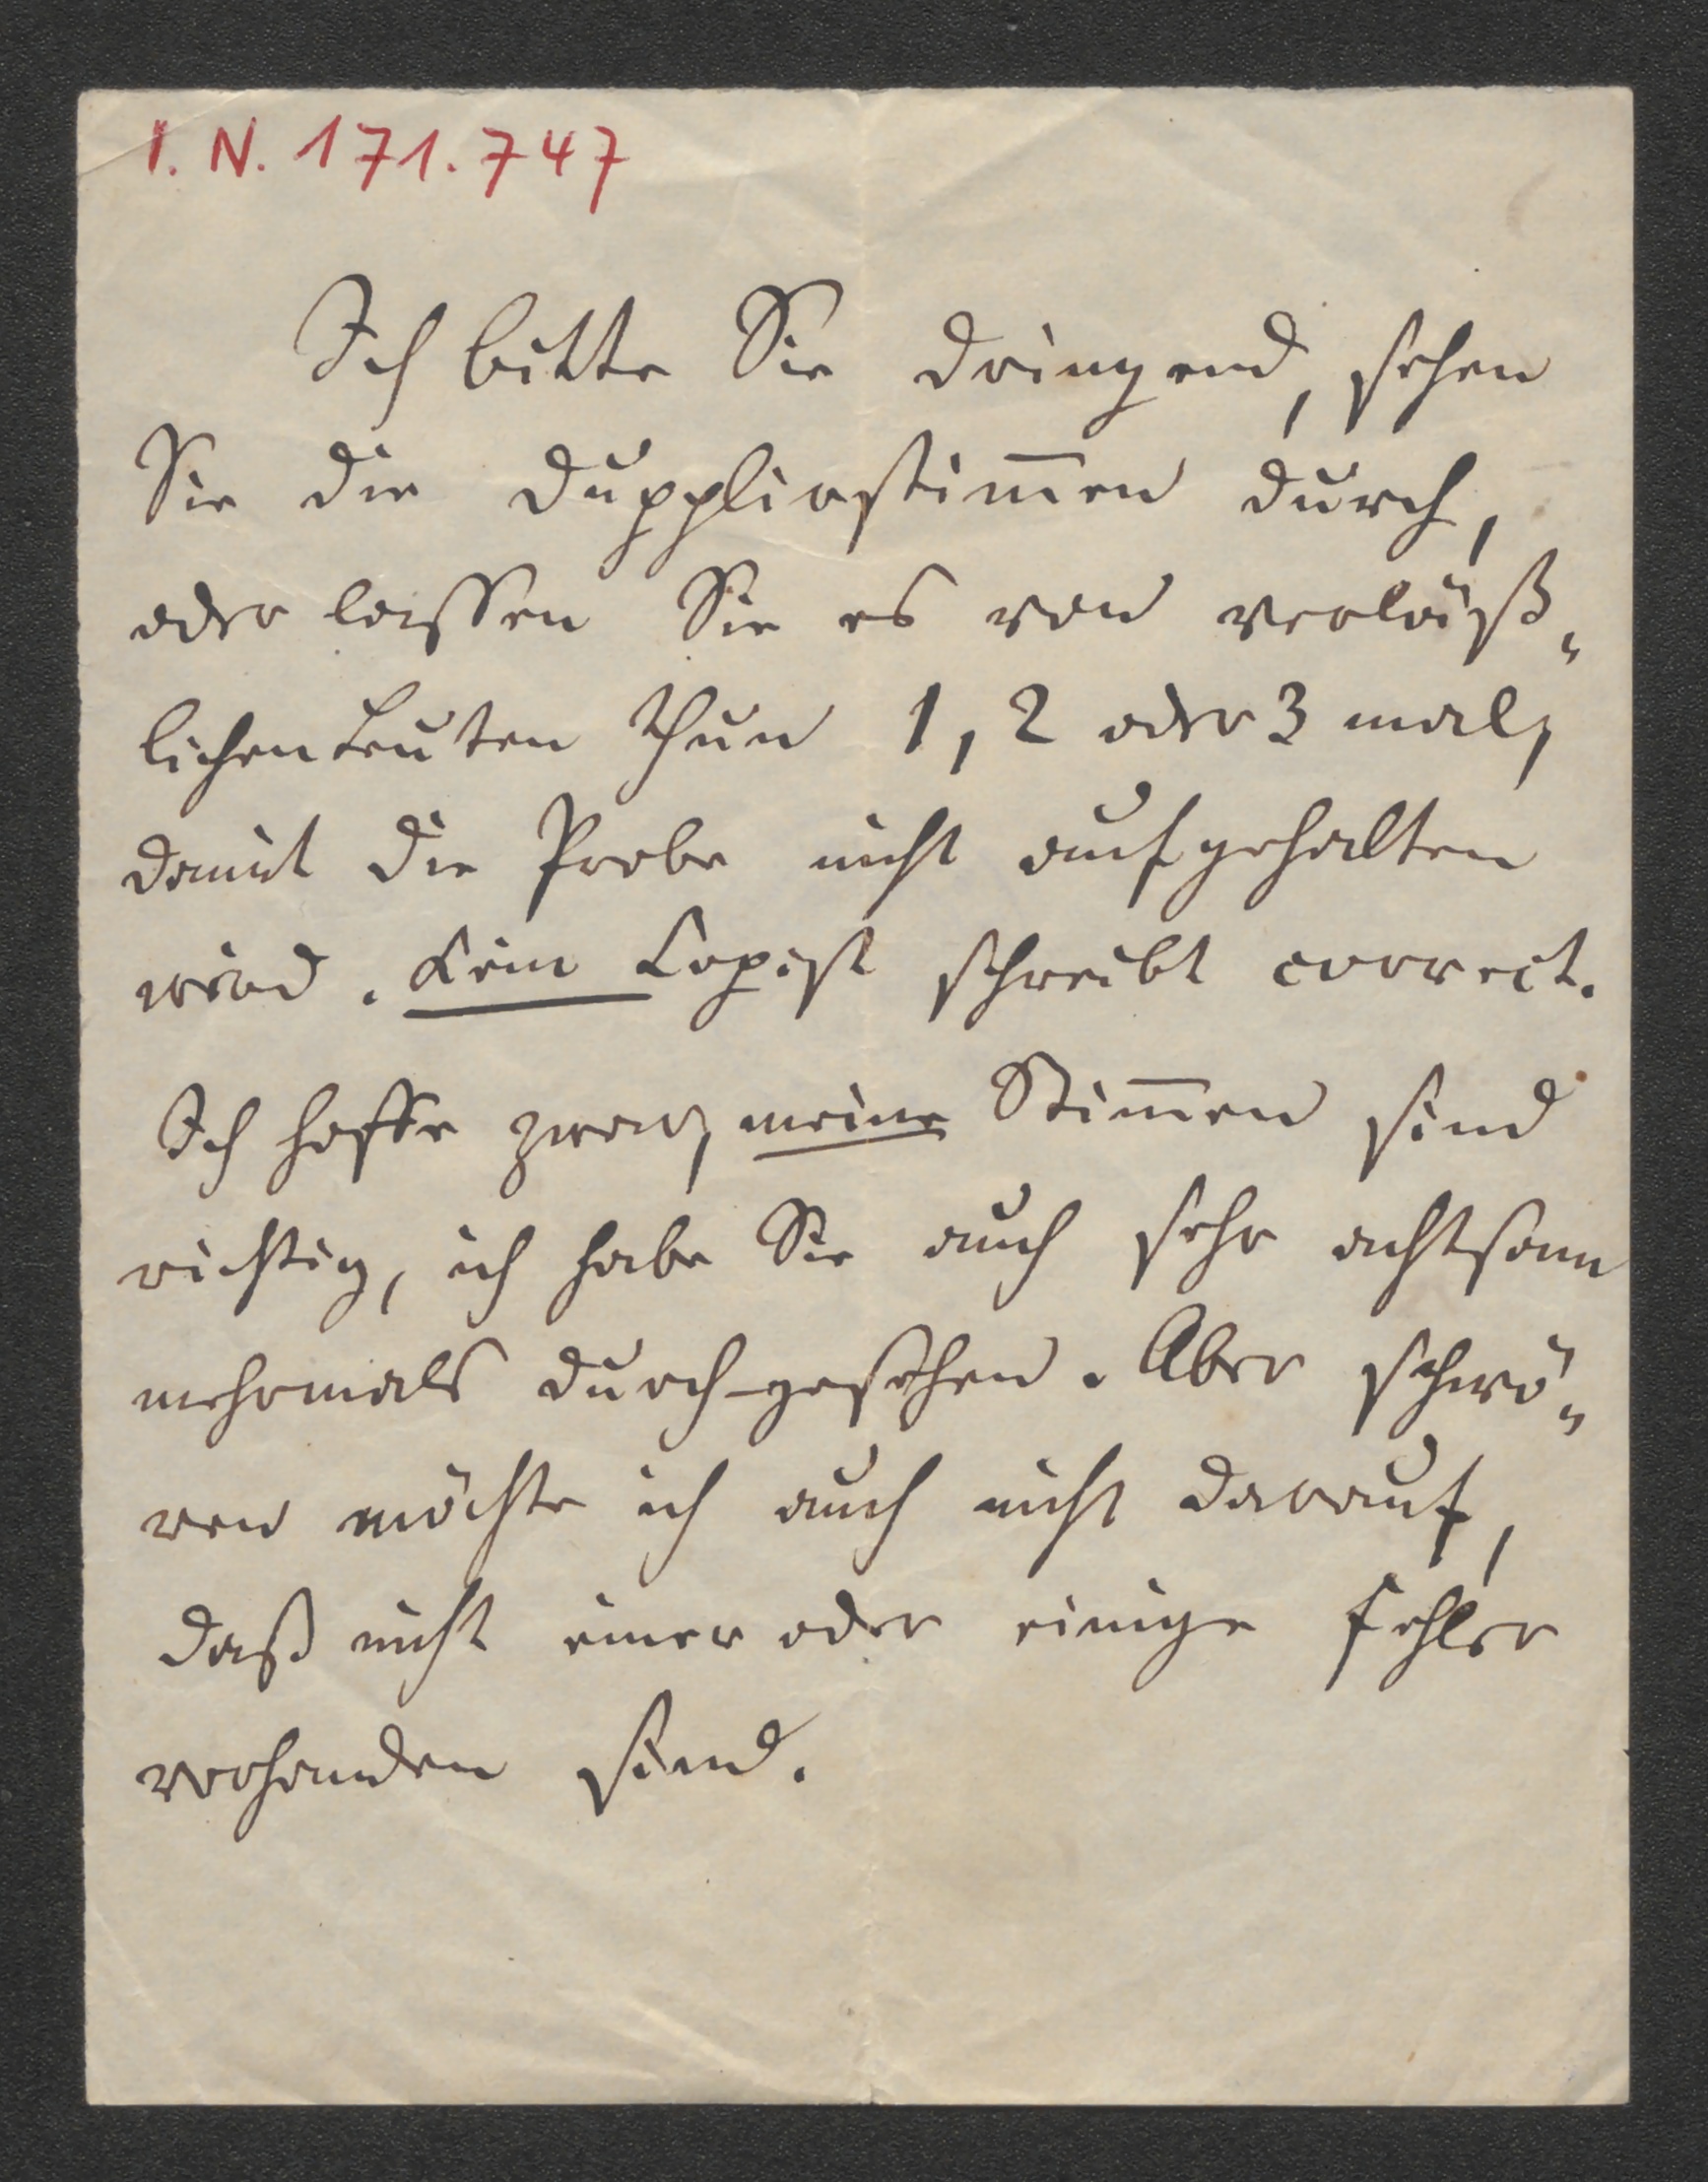 I. N. 171.747
Ich bitte Sie dringend, sehen
Sie die Duppliestim̅en durch,
oder lassen Sie es von verläß„
lichen Leuten thun 1, 2 oder 3 mal,
damit die Probe nicht aufgehalten
wird. Kein Copist schreibt correct.
Ich hoffe zwar, meine Stim̅en sind
richtig, ich habe Sie auch sehr achtsam
mehrmals durch-gesehen. Aber schwö„
ren möchte ich auch nicht darauf,
daß nicht einer oder einige Fehler
vorhanden sind.